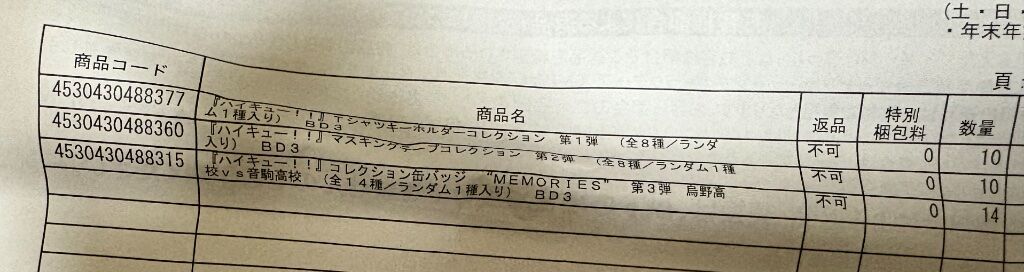 (土・日・
・年末年
頁
商品コード 商品名 返品 特別梱包料 数量
4530430488377 『ハイキュー！！』Tシャツキーホルダーコレクション 第1弾 (全8種／ランダ
ム1種入り) BD3 不可 0 10
4530430488360 『ハイキュー！！』マスキングテープコレクション 第2弾 (全8種／ランダム1種
入り) BD3 不可 0 10
4530430488315 『ハイキュー！！』コレクション缶バッジ “MEMORIES” 第3弾 烏野高
校vs音駒高校 (全14種／ランダム1種入り) BD3 不可 0 14